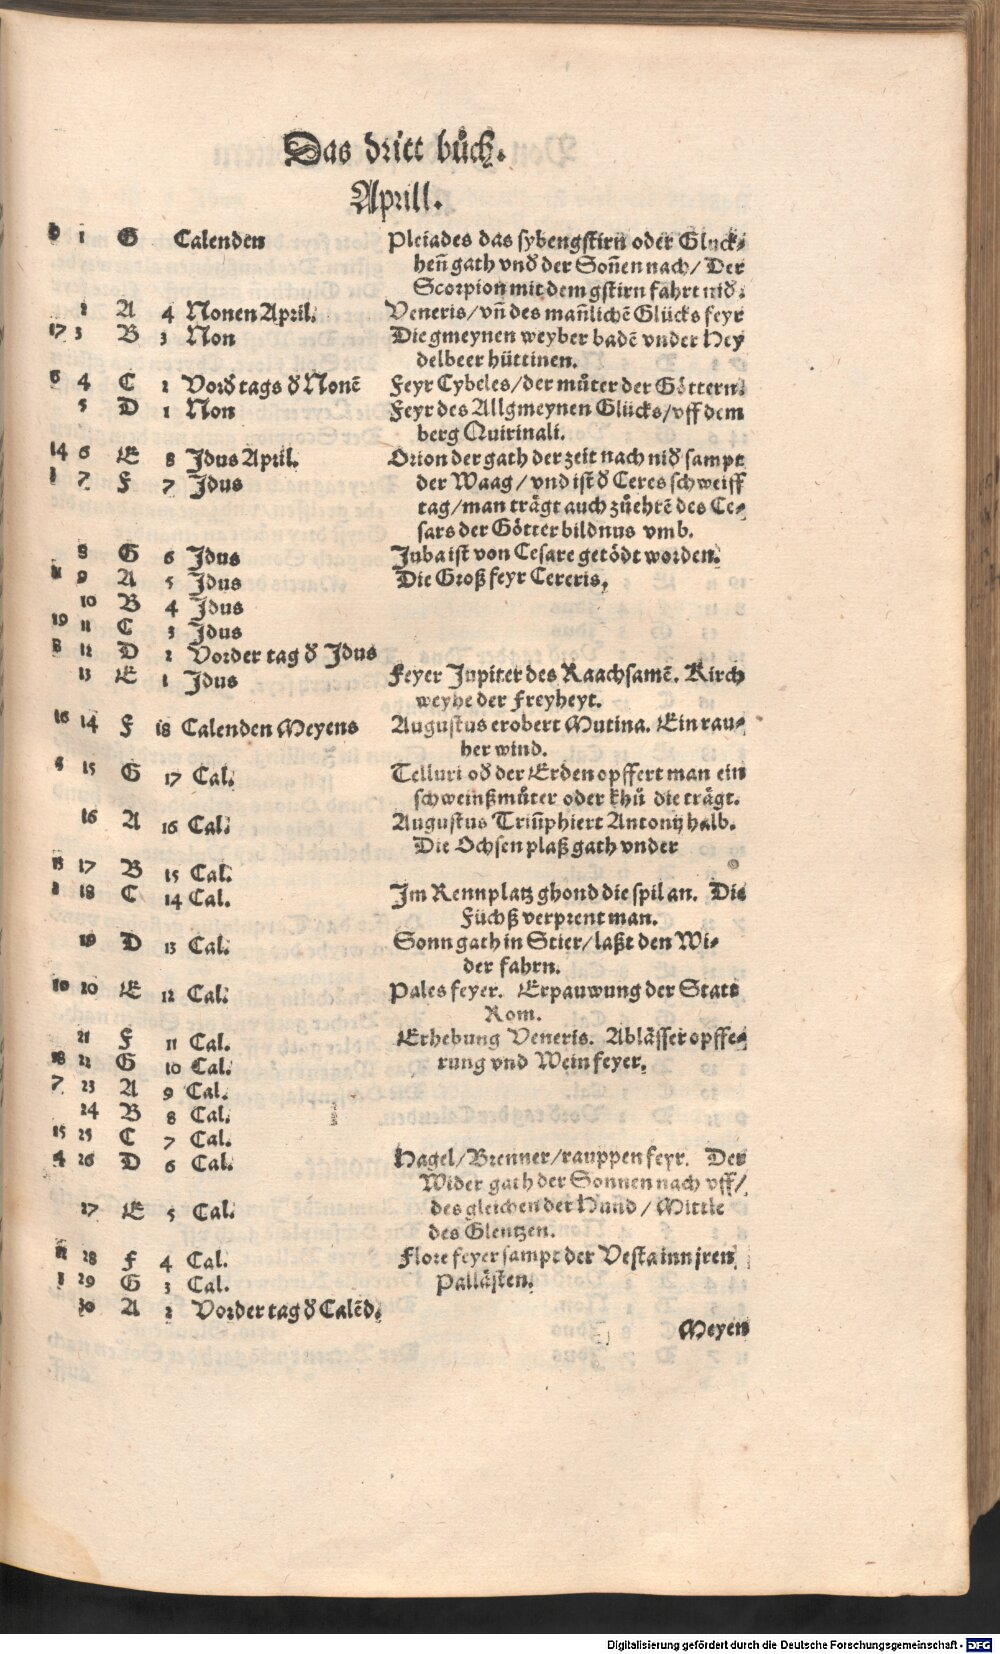 Das dritt bůch.
Aprill.
9 1 G Calenden Pleiades das sybengstirn oder Gluck⸗
heñ gath vnd der Soñen nach/ Der
Scorpion mit dem gstirn fahrt nid⸗
2 A 4 Nonen April. Veneris/vñ des mañlichẽ Glücks feyr
17 3 B 3 Non Die gmeynen weyber badẽ vnder Hey
delbeer hüttinen.
6 4 C 2 Vord tags d Nonẽ Feyr Cybeles/der můter der Göttern.
5 D 1 Non Feyr des Allgmeynen Glücks/vff dem
berg Quirinali.
14 6 E 8 Jdus April. Orion der gath der zeit nach nid sampt
3 7 F 7 Jdus der Waag/ vnd ist d Ceres schweiff
tag/man trägt auch zůehrẽ des Ce⸗
sars der Götter bildnus vmb.
8 G 6 Jdus Juba ist von Cesare getödt worden.
11 9 A 5 Jdus Die Groß feyr Cereris,
10 B 4 Jdus
19 11 C 3 Jdus
8 12 D 2 Vorder tag d Jdus
13 E 1 Jdus Feyer Jupiter des Raachsamẽ. Kirch
weyhe der Freyheyt.
16 14 F 18 Calenden Meyens Augustus erobert Mutina. Ein rau⸗
her wind.
5 15 G 17 Cal. Telluri od der Erden opffert man ein
schweinßmůter oder khů die trägt.
16 A 16 Cal. Augustus Triũphiert Antonij halb.
Die Ochsen plaß gath vnder
13 17 B 15 Cal.
2 18 C 14 Cal. Jm Rennplatz ghond die spil an. Die
Füchß verprent man.
19 D 13 Cal. Sonn gath in Stier/laßt den Wi⸗
der fahrn.
10 20 E 12 Cal. Pales feyer. Erpauwung der Statt
Rom.
21 F 11 Cal. Erhebung Veneris. Ablässer opffe⸗
18 22 G 10 Cal. rung vnd Wein feyer.
7 23 A 9 Cal.
24 B 8 Cal.
15 25 C 7 Cal.
4 26 D 6 Cal. Hagel/Brenner/rauppen feyr. Der
Wider gath der Sonnen nach vff/
27 E 5 Cal. des gleichen der Hund/Mittle
des Glentzen.
12 28 F 4 Cal. Flore feyer sampt der Vesta inn jren
1 29 G 3 Cal. Pallästen.
30 A 2 Vorder tag d Calẽd.
Meyen
Digitalisierung gefördert durch die Deutsche Forschungsgemeinschaft - DFG